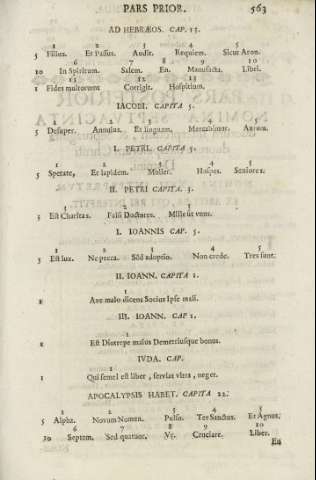 PARS PRIOR. 563
AD HEBRÆOS. CAP. 13.
1 2 3 4 5
5 Filius. Et Passus. Audit. Requiem. Sicut Aron.
6 7 8 9 10
10 In Spiritum. Salem. En. Manufacta. Libri.
11 12 13
1 Fides multorum Corrigit. Hospitium.
IACOBI. CAPITA 5.
5 Desuper. Annulus. Et linguam. Mercabimur. Aurum.
I. PETRI. CAPITA 5.
1 2 3 4 5
5 Sperate, Et lapidem. Mulier. Hospes. Seniores.
II. PETRI CAPITA 3.
1 2 3
3 Est Charitas. Falsi Doctores. Mille ut venit.
I. IOANNIS CAP. 5.
1 2 3 4 5
5 Est lux. Ne pecca. Sed adoptio. Non crede. Tres sunt.
II. IOANN. CAPITA 1.
1
Ave malo dicens Socius Ipse mali.
III. IOANN. CAP 1.
1
Est Diotrepe malus Demetriusque bonus.
IVDA. CAP.
1
1 Qui semel est liber, servias vitia, neger.
APOCALYPSIS HABET. CAPITA 22.
1 2 3 4 5
5 Alpha. Novum Nomen. Pulsit. Ter Sanctus. Et Agnus.
6 7 8 9 10
10 Septem. Sed quatuor. Væ. Cruciare. Liber.